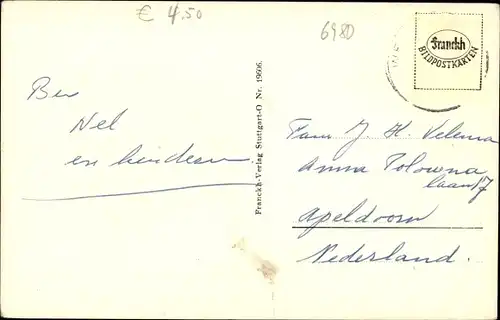 € 4.50
6980
Franckh
BILDPOSTKARTEN
Ben
Nel
en kinderen
Franckh-Verlag Stuttgart-O Nr. 19606.
Fam J. H. Velema
Anna Polowna
laan 17
Apeldoorn
Nederland.